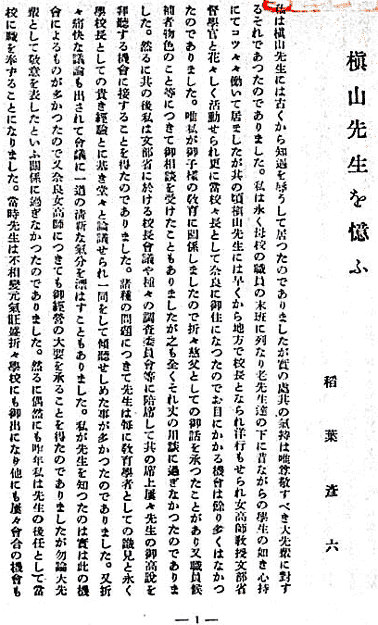 槇山先生を憶ふ
稻葉彦六
私は槇山先生には古くから知遇を辱うして居つたのでありましたが實の處其の氣持は唯尊敬すべき大先輩に對す
るそれであつたのでありました。私は永く母校の職員の末班に列なり老先生達の下に昔ながらの學生の如き心持
にてコツ〱働いて居ましたが其の頃槇山先生には早くから地方で校長となられ洋行もせられ女高師敎授文部省
督學官と花々しく活動せられ更に當校々長として奈良に御住になつたのでお目にかかる機會は餘り多くはなかつ
たのでありました。唯私が御子樣の敎育に關係しましたので折々慈父としての御話を承つたことがあり又職員候
補者物色のこと等につき御相談を受けたこともありましたが之も全くそれ丈の用談に過ぎなかつたのでありま
した。然るに其の後私は文部省に於ける校長會議や種々の調査委員會等に陪席して其の席上屢々先生の御高說を
拜聽する機會に接することを得たのでありました。諸種の問題につきて先生は每に敎育學者としての識見と永く
學校長としての貴き經驗とに基き堂々と論議せられ一同をして傾聽せしめた事が多かつたのでありました。又折
々痛快な議論も出されて會議に一道の淸新な氣分を漂はすこともありました。私が先生を知つたのは實は此の機
會によるものが多かつたので又奈良女高師につきても御經營の大要を承ることを得たのでありましたが勿論大先
輩として敬意を表したといふ關係に過ぎなかつたのでありました。然るに偶然にも昨年私は先生の後任として當
校に職を奉ずることになりました。當時先生は不相變元氣旺盛折々學校にも御出になり他にも屢々會合の機會も
— 1 —